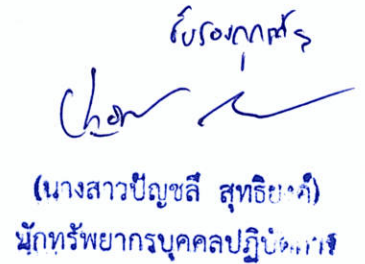 รับรองถูกต้อง
(นางสาวปัญชลี สุทธิยงค์)
นักทรัพยากรบุคคลปฏิบัติการ